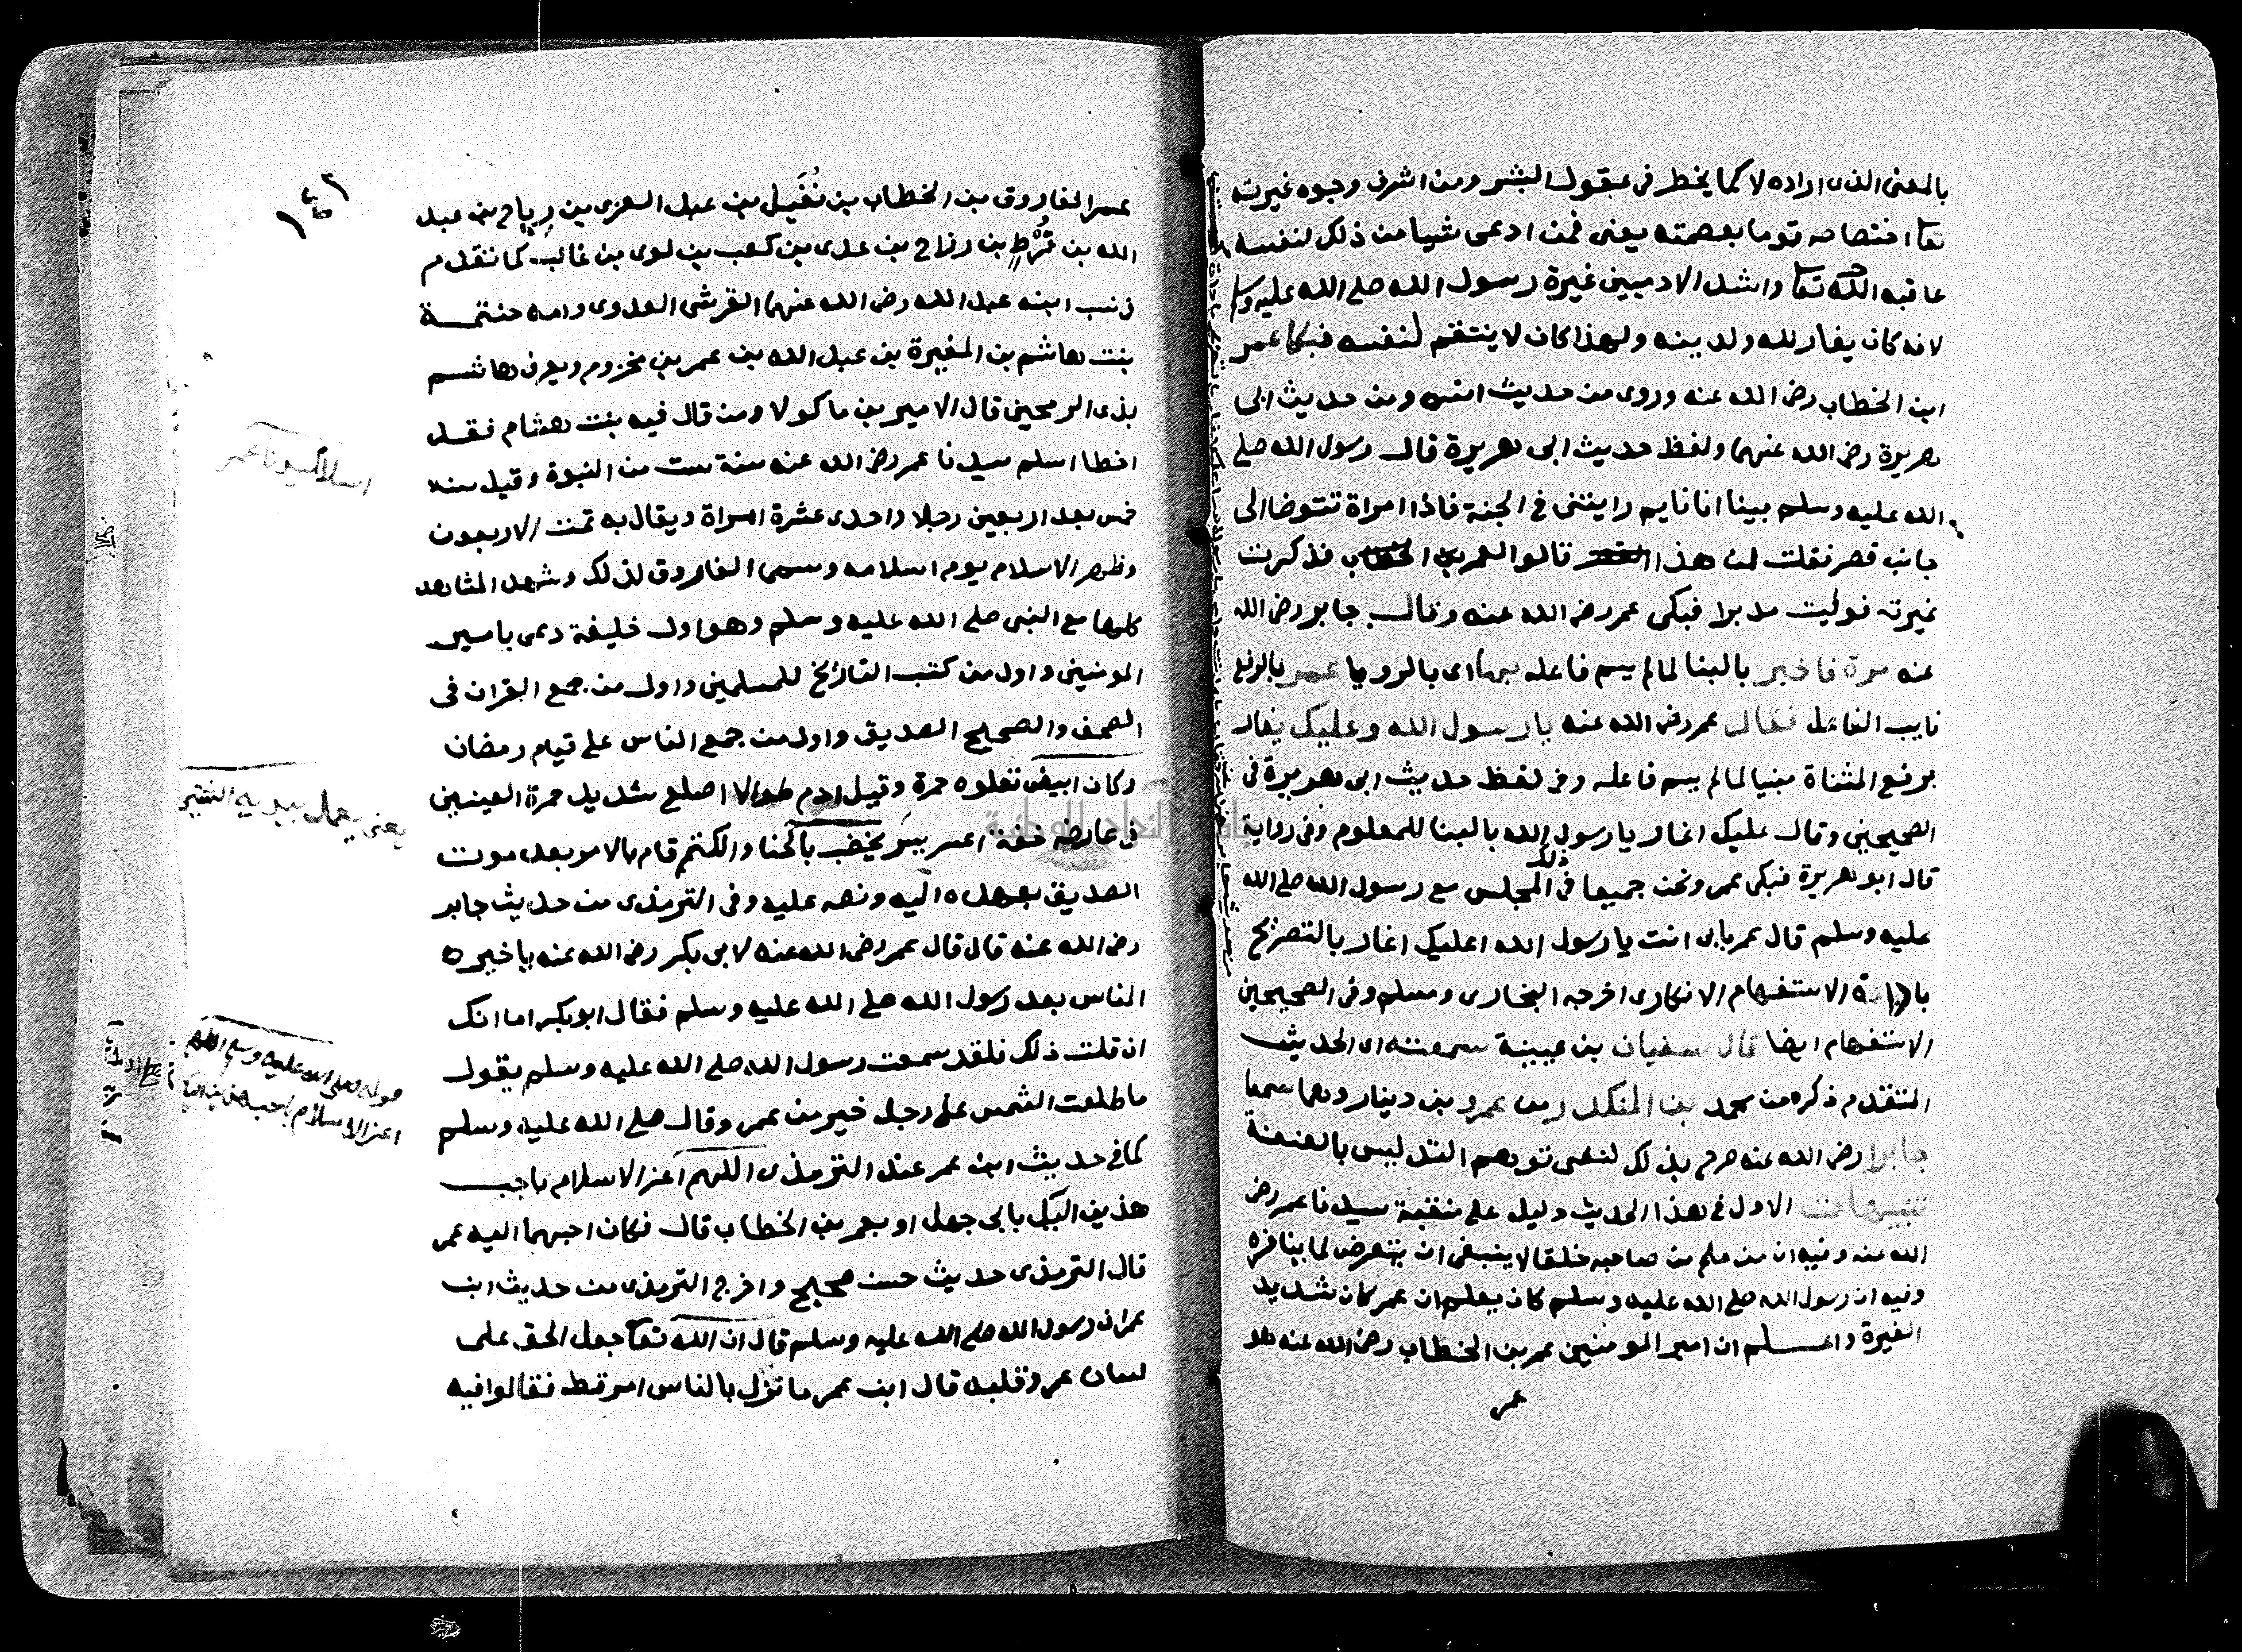 بالمعنى الذى اراده لا كما يخطر فى عقول البشر ومن اشرف وجوه غيرته
تعا اختصاصه قوما بعصمته يعنى فمن ادعى شيا من ذلك لنفسه
عاقبه الله تعا واشد الادميين غيرة رسول الله صلى الله عليه وسلم
لانه كان يغار لله ولدينه ولهذا كان لا ينتقم لنفسه فبكا عمر
ابن الخطاب رضى الله عنه وروى من حديث انس ومن حديث ابى
هريرة رضى الله عنهما ولفظ حديث ابى هريرة قال رسول الله صلى
الله عليه وسلم بينا انا نايم رايتنى فى الجنة فاذا امراة تتوضا الى
جانب قصر فقلت لمن هذا القصر قالوا لعمر بن الخطاب فذكرت
غيرته فوليت مدبرا فبكى عمر رضى الله عنه وقال جابر رضى الله
عنه مرة فاخبر بالبنا لما لم يسم فاعله بهااى بالرويا عمر بالرفع
نايب الفاعل فقال عمر رضى الله عنه يا رسول الله وعليك يغار
برفع المثناة مبنيا لما لم يسم فاعله وفى لفظ حديث ابى هريرة فى
الصحيحين وقال عليك اغار يا رسول الله بالبنا للمعلوم وفى رواية
قال ابو هريرة فبكى عمر ونحن جميعا فى ذلك المجلس مع رسول الله صلى الله
عليه وسلم قال عمر بابى انت يا رسول الله اعليك اغار بالتصريح
باداة الاستفهام الانكارى اخرجه البخارى ومسلم وفى الصحيحين
الاستفهام ايضا قال سفيان بن عيينة سمعته اى الحديث
المتقدم ذكره من محمد بن المنكدر ومن عمرو بن دينار وهما سمعا
جابرا رضى الله عنه صرح بذلك لنفى توهم التدليس بالعنعنة
تنبيهات الاول فى هذا الحديث دليل على منقبة سيدنا عمر رضى
الله عنه وفيه ان من علم من صاحبه خلقا لا ينبغى ان يتعرض لما ينافره
وفيه ان رسول الله صلى الله عليه وسلم كان يعلم ان عمر كان شديد
الغيرة واعلم ان امير المومنين عمر بن الخطاب رضى الله عنه هو
عمر
١٤٢
عمر الفاروق بن الخطاب بن نُفَيل بن عبد العزى بن رِياح بن عبد
الله بن قُرْطٍ بن رزاح بن عدى بن كعب بن لوى بن غالب كما تقدم
فى نسب ابنه عبد الله رضى الله عنهما القرشى العدوى وامه حنتمة
بنت هاشم بن المغيرة بن عبد الله بن عمر بن مخزوم ويعرف هاشم
بذى الرمحين قال الامير بن ماكولا ومن قال فيه بنت هشام فقد
اخطا اسلم سيدنا عمر رضى الله عنه سنة ست من النبوة وقيل سنة
خمس بعد اربعين رجلا واحدى عشرة امراة ويقال به تمت الاربعون
وظهر الاسلام يوم اسلامه وسمى الفاروق لذلك وشهد المشاهد
كلها مع النبى صلى الله عليه وسلم وهو اول خليفة دعى بامير
المومنين واول من كتب التاريخ للمسلمين واول من جمع القران فى
الصحف والصحيح الصديق واول من جمع الناس على قيام رمضان
وكان ابيض تعلوه حمرة وقيل ادم طوالا اصلع شديد حمرة العينين
فى عارضه خفة اعسر يسر يخضب بالحنا والكتم قام بالامر بعد موت
الصديق بعهده اليه ونصه عليه وفى الترمذى من حديث جابر
رضى الله عنه قال قال عمر رضى الله عنه لابى بكر رضى الله عنه يا خير
الناس بعد رسول الله صلى الله عليه وسلم فقال ابو بكر اما انك
ان قلت ذلك فلقد سمعت رسول الله صلى الله عليه وسلم يقول
ما طلعت الشمس على رجل خير من عمر وقال صلى الله عليه وسلم
كما فى حديث ابن عمر عند الترمذى اللهم اعز الاسلام باحب
هذين اليك بابى جهل او بعمر بن الخطاب قال فكان احبهما اليه عمر
قال الترمذى حديث حسن صحيح واخرج الترمذى من حديث ابن
عمر ان رسول الله صلى الله عليه وسلم قال ان الله تعا جعل الحق على
لسان عمر وقلبه قال ابن عمر ما نزل بالناس امر قط فقالوا فيه
يعنى يعمل بيديه
قوله صلى الله عليه وسلم اللهم
اعز الاسلام باحب هذين اليك